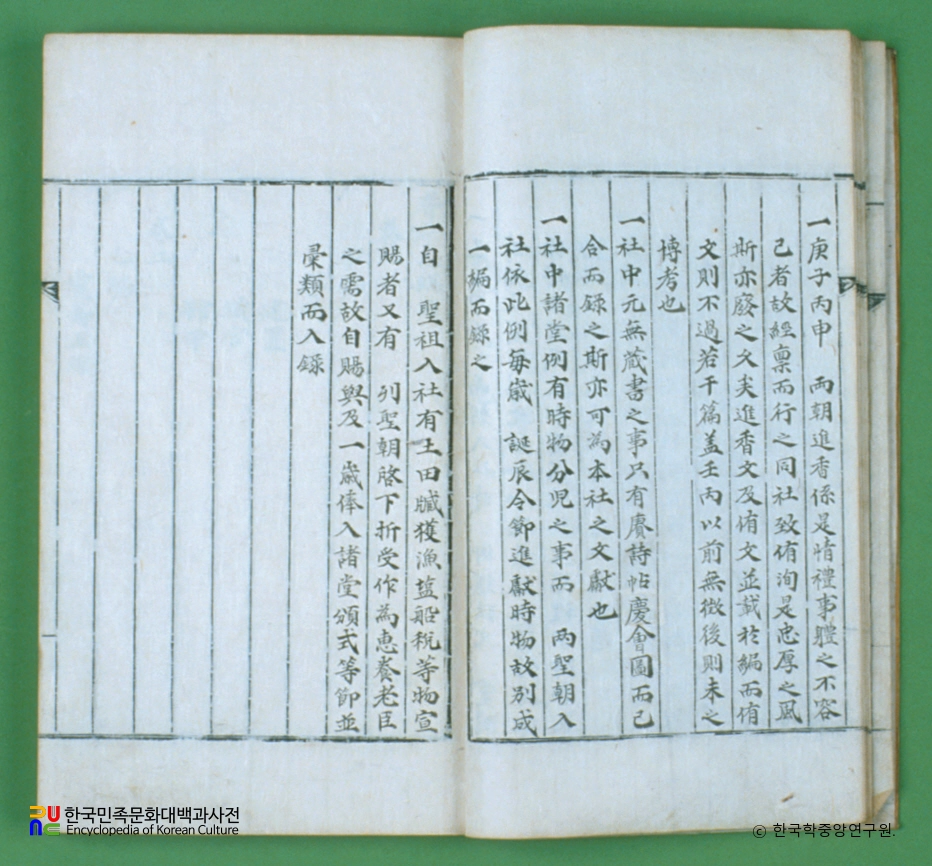 一庚子丙申 兩朝進香係是情禮事軆之不容
已者故經稟而行之同社致侑洵是忠厚之風
斯亦廢之久矣進香文及侑文並載於編而侑
文則不過若干篇盖壬丙以前無徵後則未之
博考也
一社中元無蔵書之事只有賡詩帖慶會圖而已
合而錄之斯亦可為本社之文獻也
一社中諸堂例有時物分兒之事而 两聖朝入
社依此例每歲 誕辰令節進獻時物故別成
一編而錄之
一自 聖祖入社有土田臧獲漁塩船稅等物宣
賜者又有 列聖朝啓下折受作為惠養老臣
之需故自賜與及一歲俸入諸堂頒式等節並
彙類而入錄
한국민족문화대백과사전
Encyclopedia of Korean Culture
© 한국학중앙연구원.